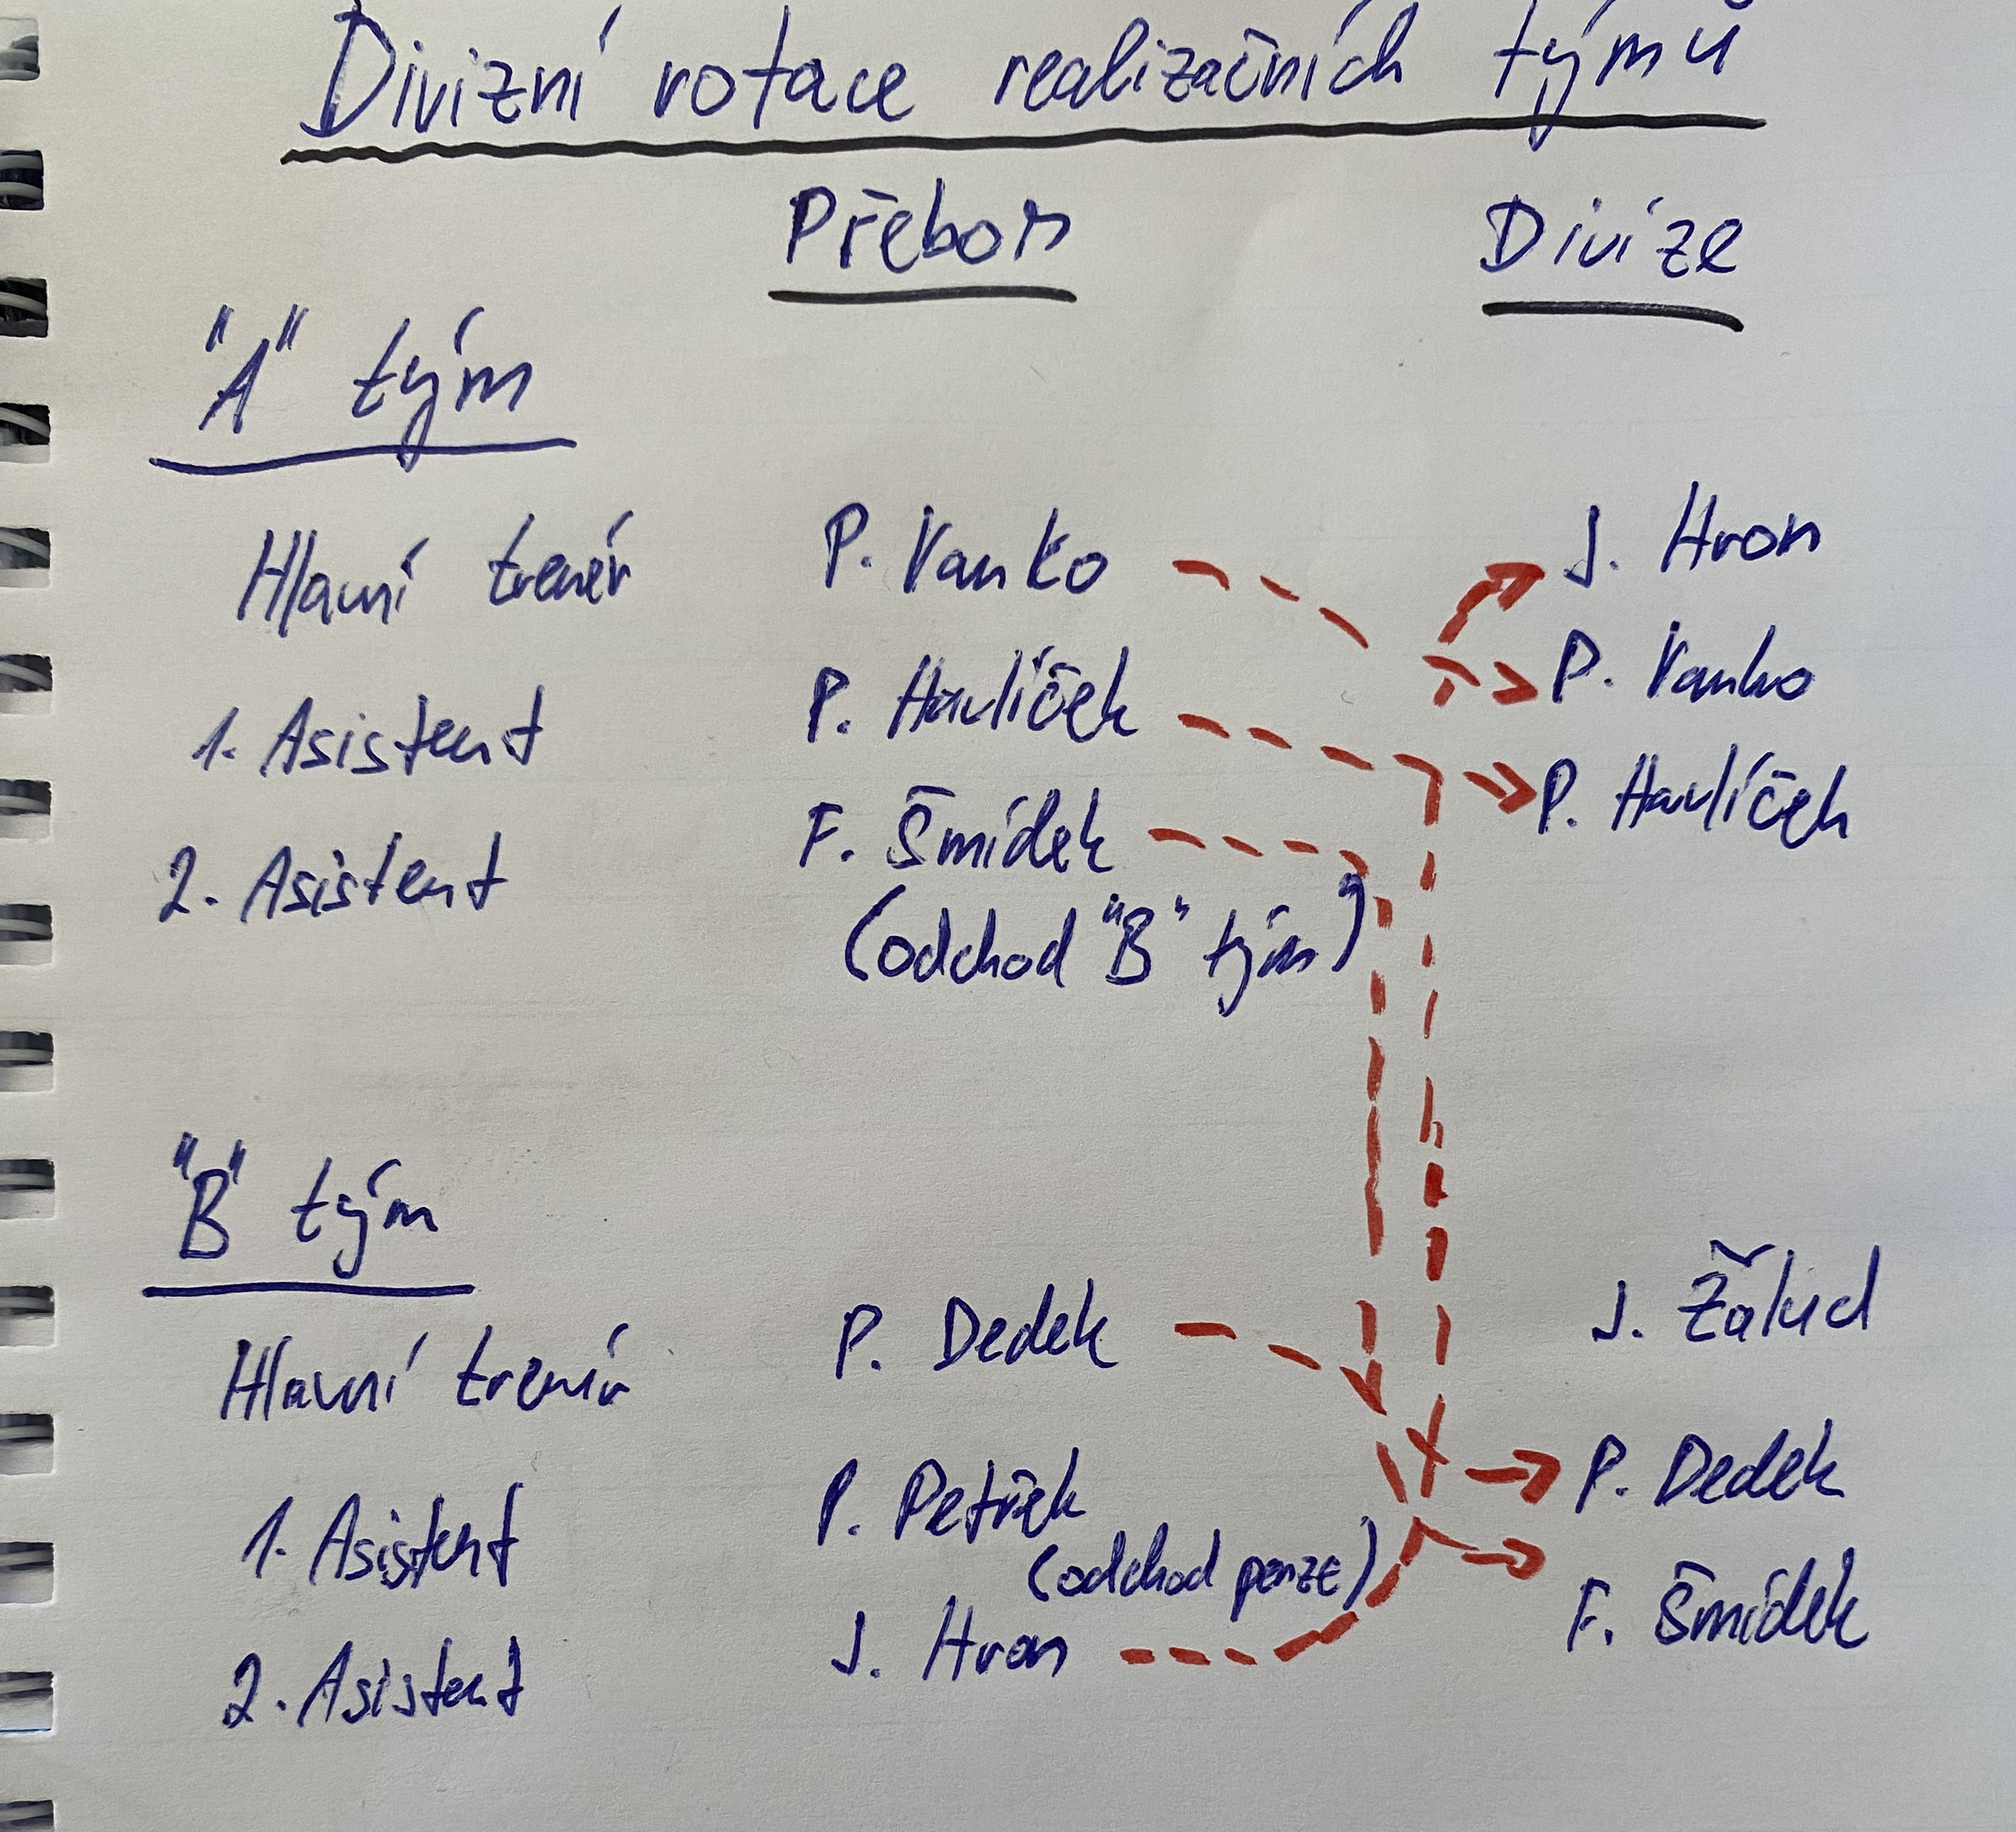 Divizní rotace realizačních týmů
Přebor Divize
"A" tým
Hlavní trenér P. Vanko J. Hron
P. Vanko
1. Asistent P. Havlíček P. Havlíček
2. Asistent F. Šmídek
(odchod "B" tým)
"B" tým
Hlavní trenér P. Dedek J. Žalud
1. Asistent P. Petřek P. Dedek
(odchod penze)
2. Asistent J. Hron F. Šmídek